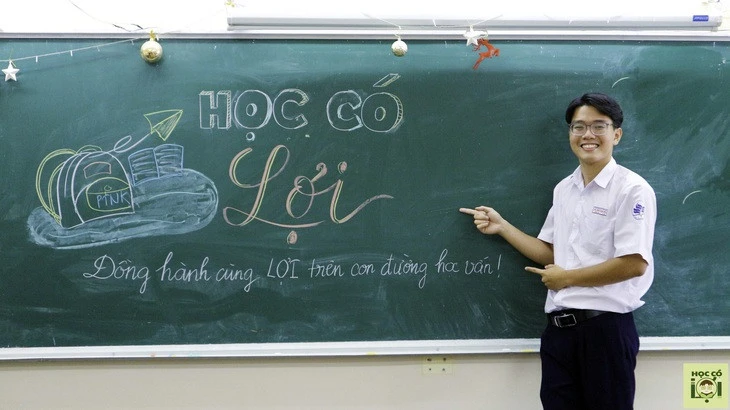 HỌC CÓ
Lợi
PINK
Đồng hành cùng LỢI trên con đường học vấn!
HỌC CÓ
LỢI